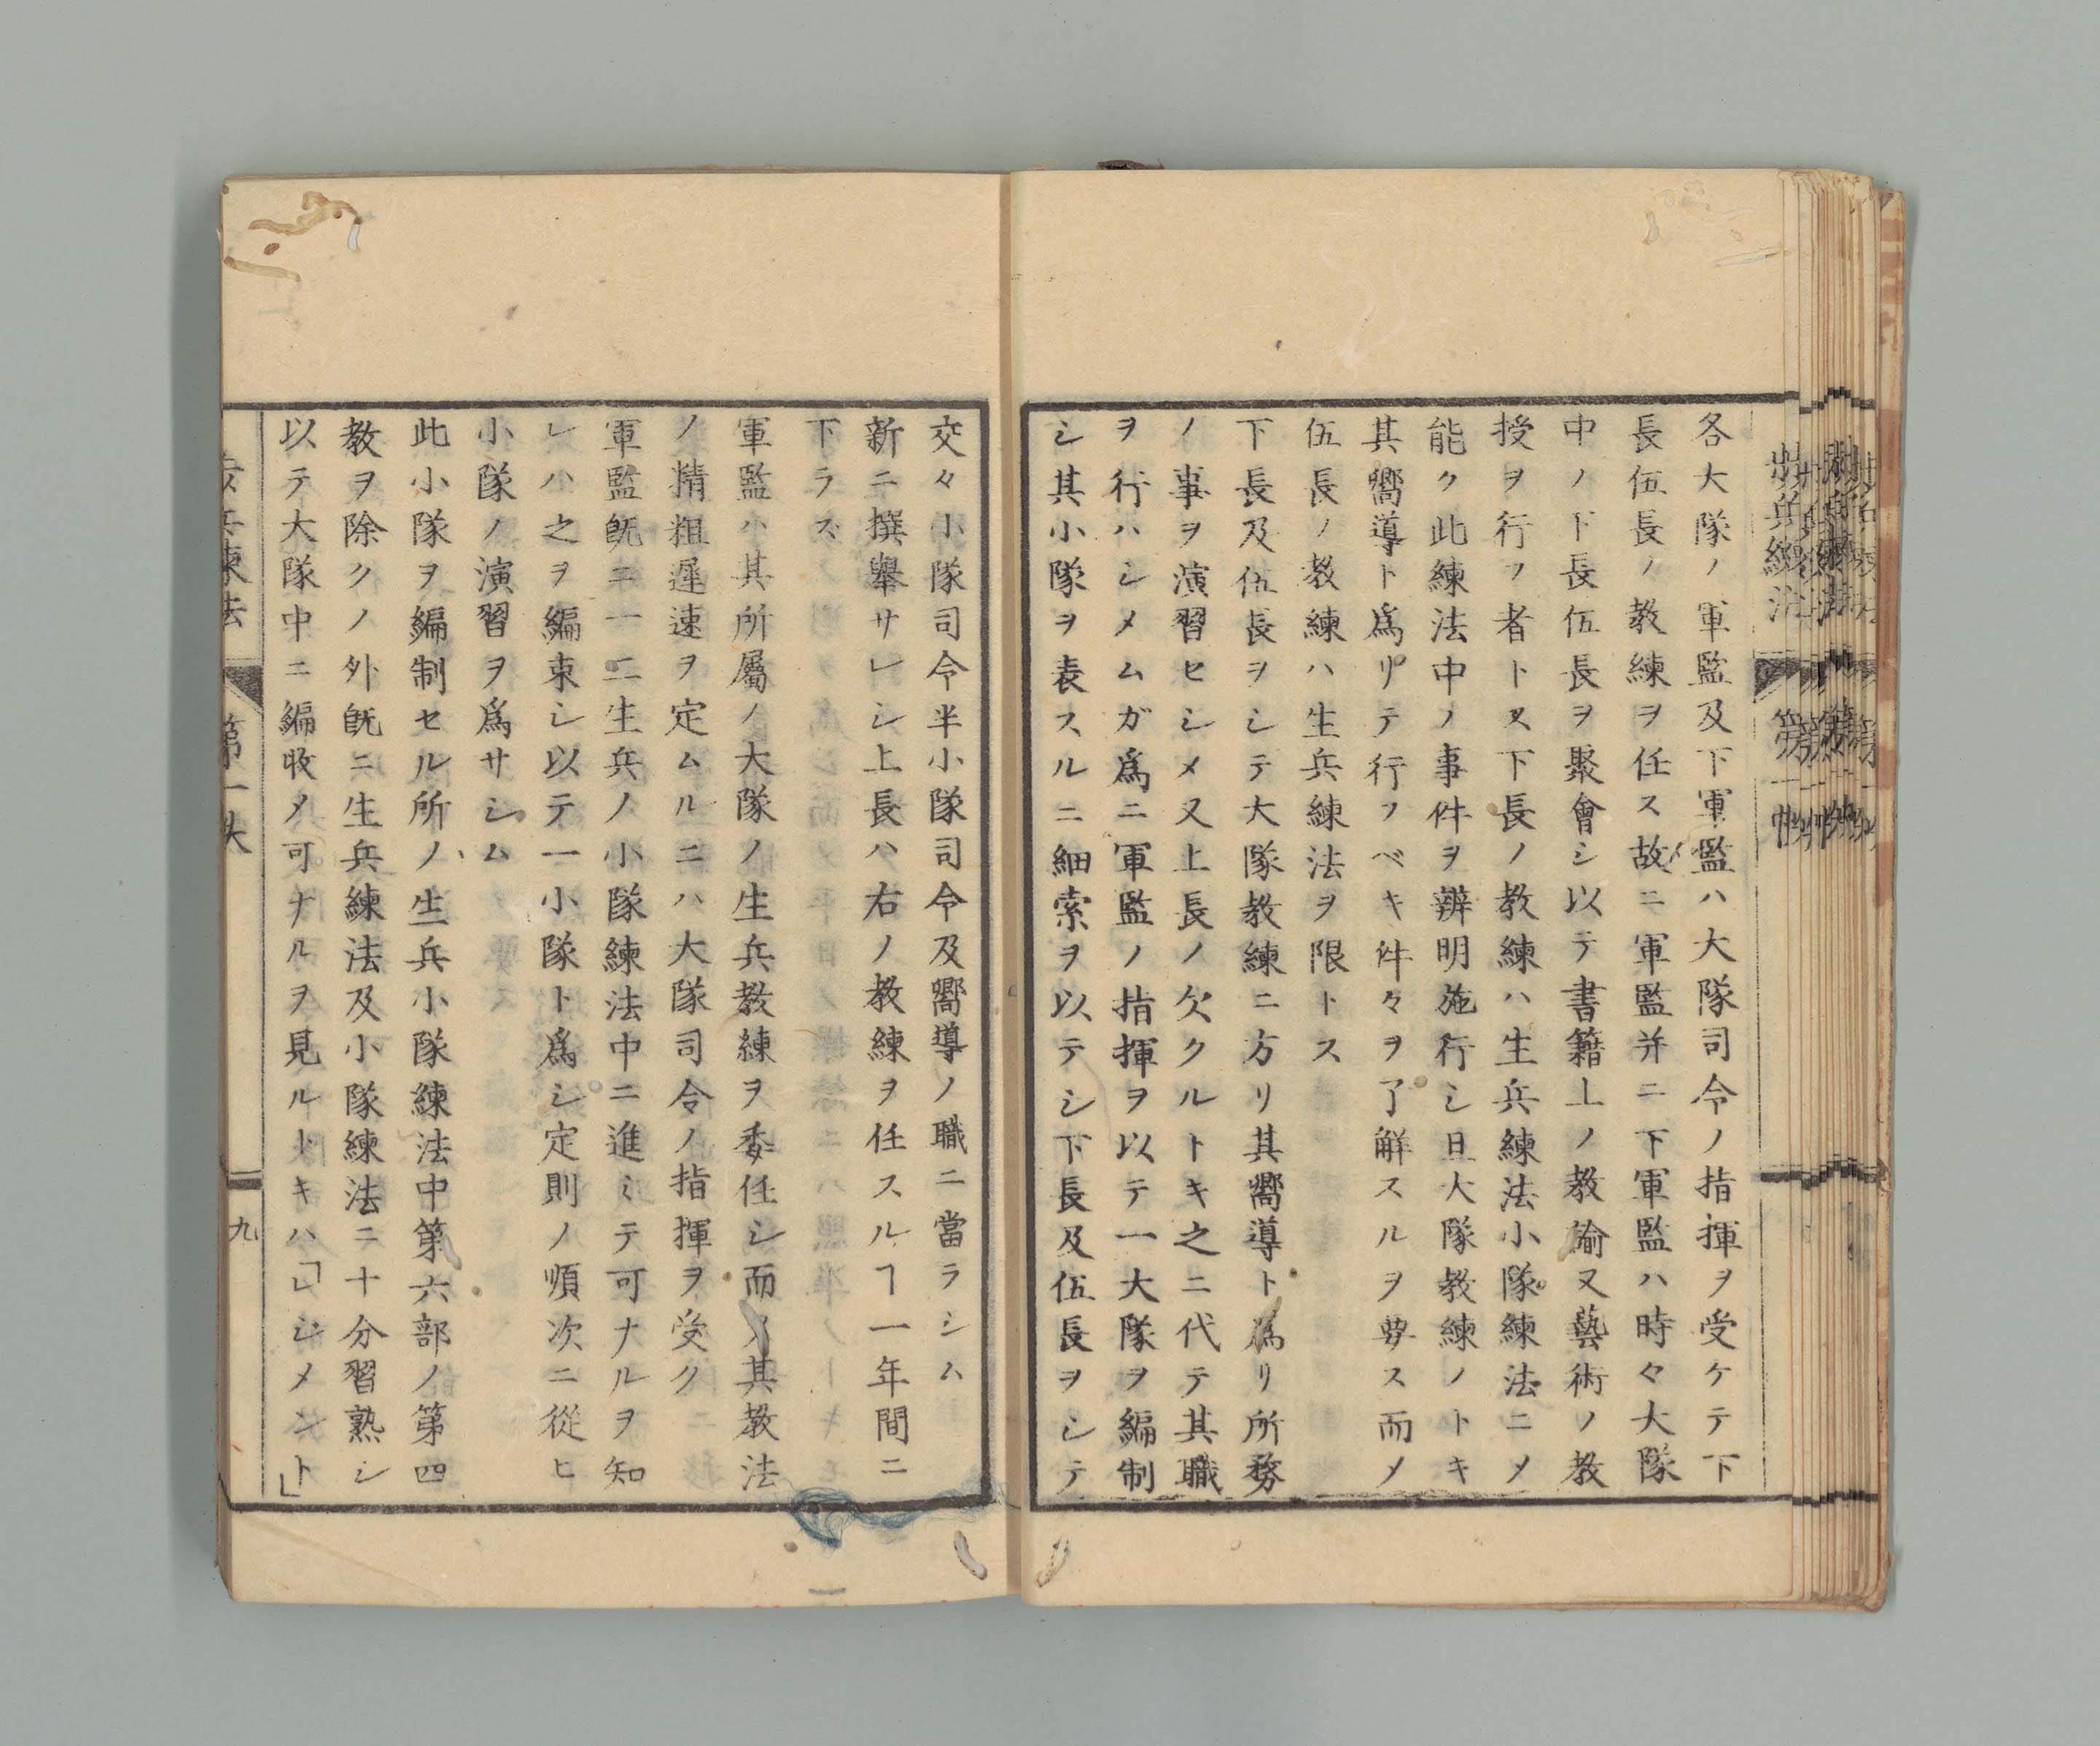 各大隊ノ軍監及下軍監ハ大隊司令ノ指揮ヲ受ケテ下
長伍長ノ教練ヲ任ス故ニ軍監并ニ下軍監ハ時々大隊
中ノ下長伍長ヲ聚會シ以テ書籍上ノ教諭又藝術ノ教
授ヲ行フ者トス下長ノ教練ハ生兵練法小隊練法ニメ
能ク此練法中ノ事件ヲ辨明施行シ且大隊教練ノトキ
其嚮導ト爲リテ行フベキ件々ヲ了解スルヲ要ス而メ
伍長ノ教練ハ生兵練法ヲ限トス
下長及伍長ヲシテ大隊教練ニ方リ其嚮導ト爲リ所務
ノ事ヲ演習セシメ又上長ノ欠クルトキ之ニ代テ其職
ヲ行ハシメムガ爲ニ軍監ノ指揮ヲ以テ一大隊ヲ編制
シ其小隊ヲ表スルニ細索ヲ以テシ下長及伍長ヲシテ
交々小隊司令半小隊司令及嚮導ノ職ニ當ラシム
新ニ撰擧サレシ上長ハ右ノ教練ヲ任スルヿ一年間ニ
下ラズ
軍監ハ其所屬ノ大隊ノ生兵教練ヲ委任シ而メ其教法
ノ精粗遲速ヲ定ムルニハ大隊司令ノ指揮ヲ受ク
軍監既ニ一二生兵ノ小隊練法中ニ進ミテ可ナルヲ知
レハ之ヲ編束シ以テ一小隊ト爲シ定則ノ順次ニ從ヒ
小隊ノ演習ヲ爲サシム
此小隊ヲ編制セル所ノ生兵小隊練法中第六部ノ第四
教ヲ除クノ外既ニ生兵練法及小隊練法ニ十分習熟シ
以テ大隊中ニ編收メ可ナルヲ見ルトキハ「レジメント」
歩兵練法 第一大 九